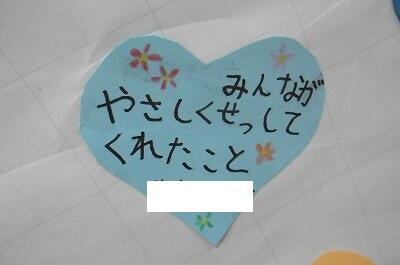 みんなが
やさしくせっして
くれたこと